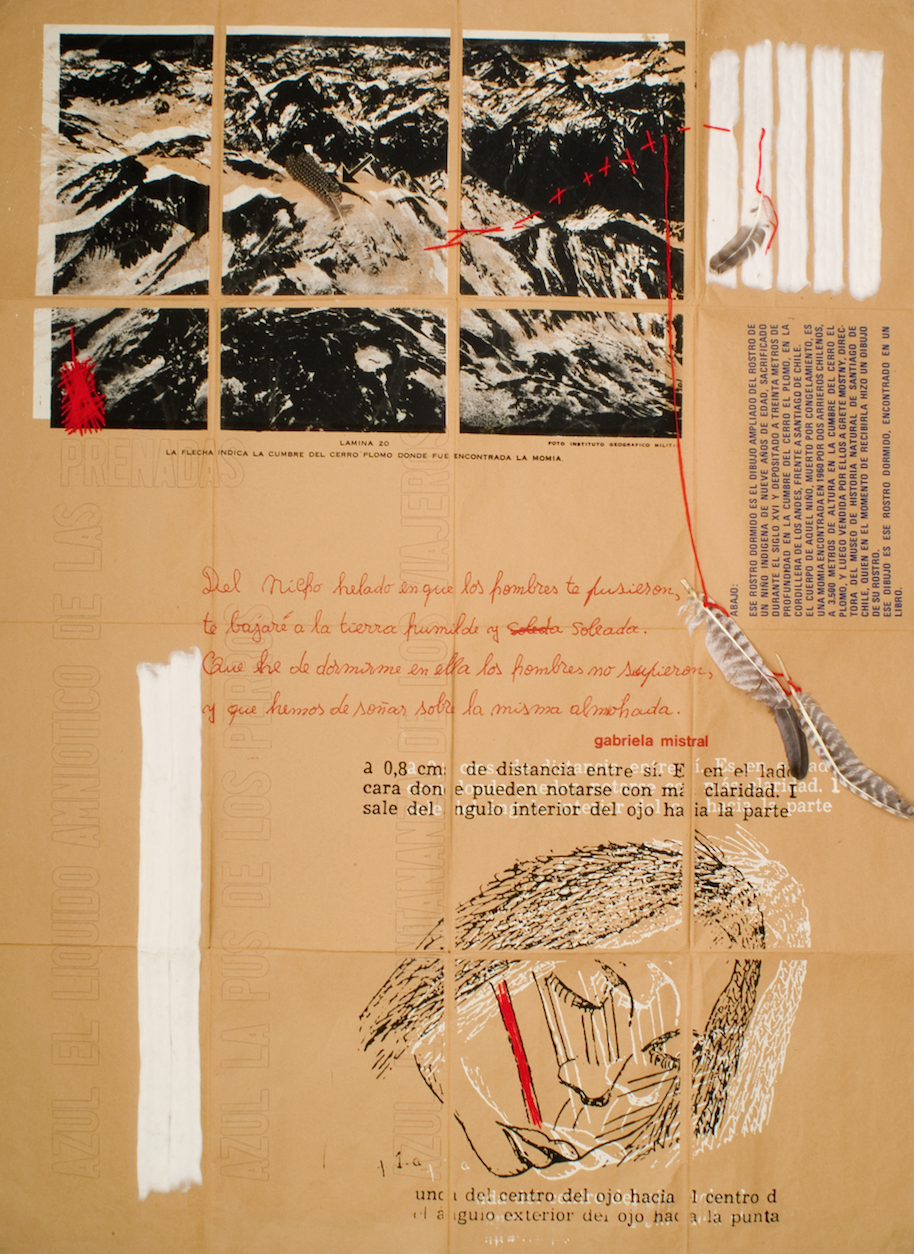 LAMINA 20
FOTO INSTITUTO GEOGRAFICO MILIT
LA FLECHA INDICA LA CUMBRE DEL CERRO PLOMO DONDE FUE ENCONTRADA LA MOMIA.
ABAJO:
ESE ROSTRO DORMIDO ES EL DIBUJO AMPLIADO DEL ROSTRO DE
UN NIÑO INDIGENA DE NUEVE AÑOS DE EDAD, SACRIFICADO
DURANTE EL SIGLO XVI Y DEPOSITADO A TREINTA METROS DE
PROFUNDIDAD EN LA CUMBRE DEL CERRO EL PLOMO, EN LA
CORDILLERA DE LOS ANDES, FRENTE A SANTIAGO DE CHILE.
EL CUERPO DE AQUEL NIÑO, MUERTO POR CONGELAMIENTO, ES
UNA MOMIA ENCONTRADA EN 1960 POR DOS ARRIEROS CHILENOS,
A 3.500 METROS DE ALTURA EN LA CUMBRE DEL CERRO EL
PLOMO, Y LUEGO VENDIDA POR ELLOS A GRETE MOSTNY, DIREC-
TORA DEL MUSEO DE HISTORIA NATURAL DE SANTIAGO DE
CHILE, QUIEN EN EL MOMENTO DE RECIBIRLA HIZO UN DIBUJO
DE SU ROSTRO.
ESE DIBUJO ES ESE ROSTRO DORMIDO, ENCONTRADO EN UN
LIBRO.
AZUL EL LIQUIDO AMNIOTICO DE LAS
PREÑADAS
AZUL LA PUS DE LOS PERROS
AZUL DE LOS VIAJEROS
Del Nicho helado en que los hombres te pusieron,
te bajaré a la tierra humilde y Soleda Soleada.
Que he de dormirme en ella los hombres no supieron,
y que hemos de soñar sobre la misma almohada.
gabriela mistral
a 0,8 cm de distancia entre sí. E en el lado
cara don e pueden notarse con m claridad. I
sale del ngulo interior del ojo ha ia la parte
1-a
un a del centro del ojo hacia l centro d
el á gulo exterior del ojo hac a la punta